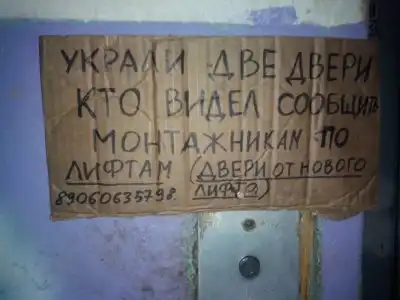 УКРАЛИ ДВЕ ДВЕРИ
КТО ВИДЕЛ СООБЩИТЬ
МОНТАЖНИКАМ ПО
ЛИФТАМ (ДВЕРИ ОТ НОВОГО
89060635798 ЛИФТА)